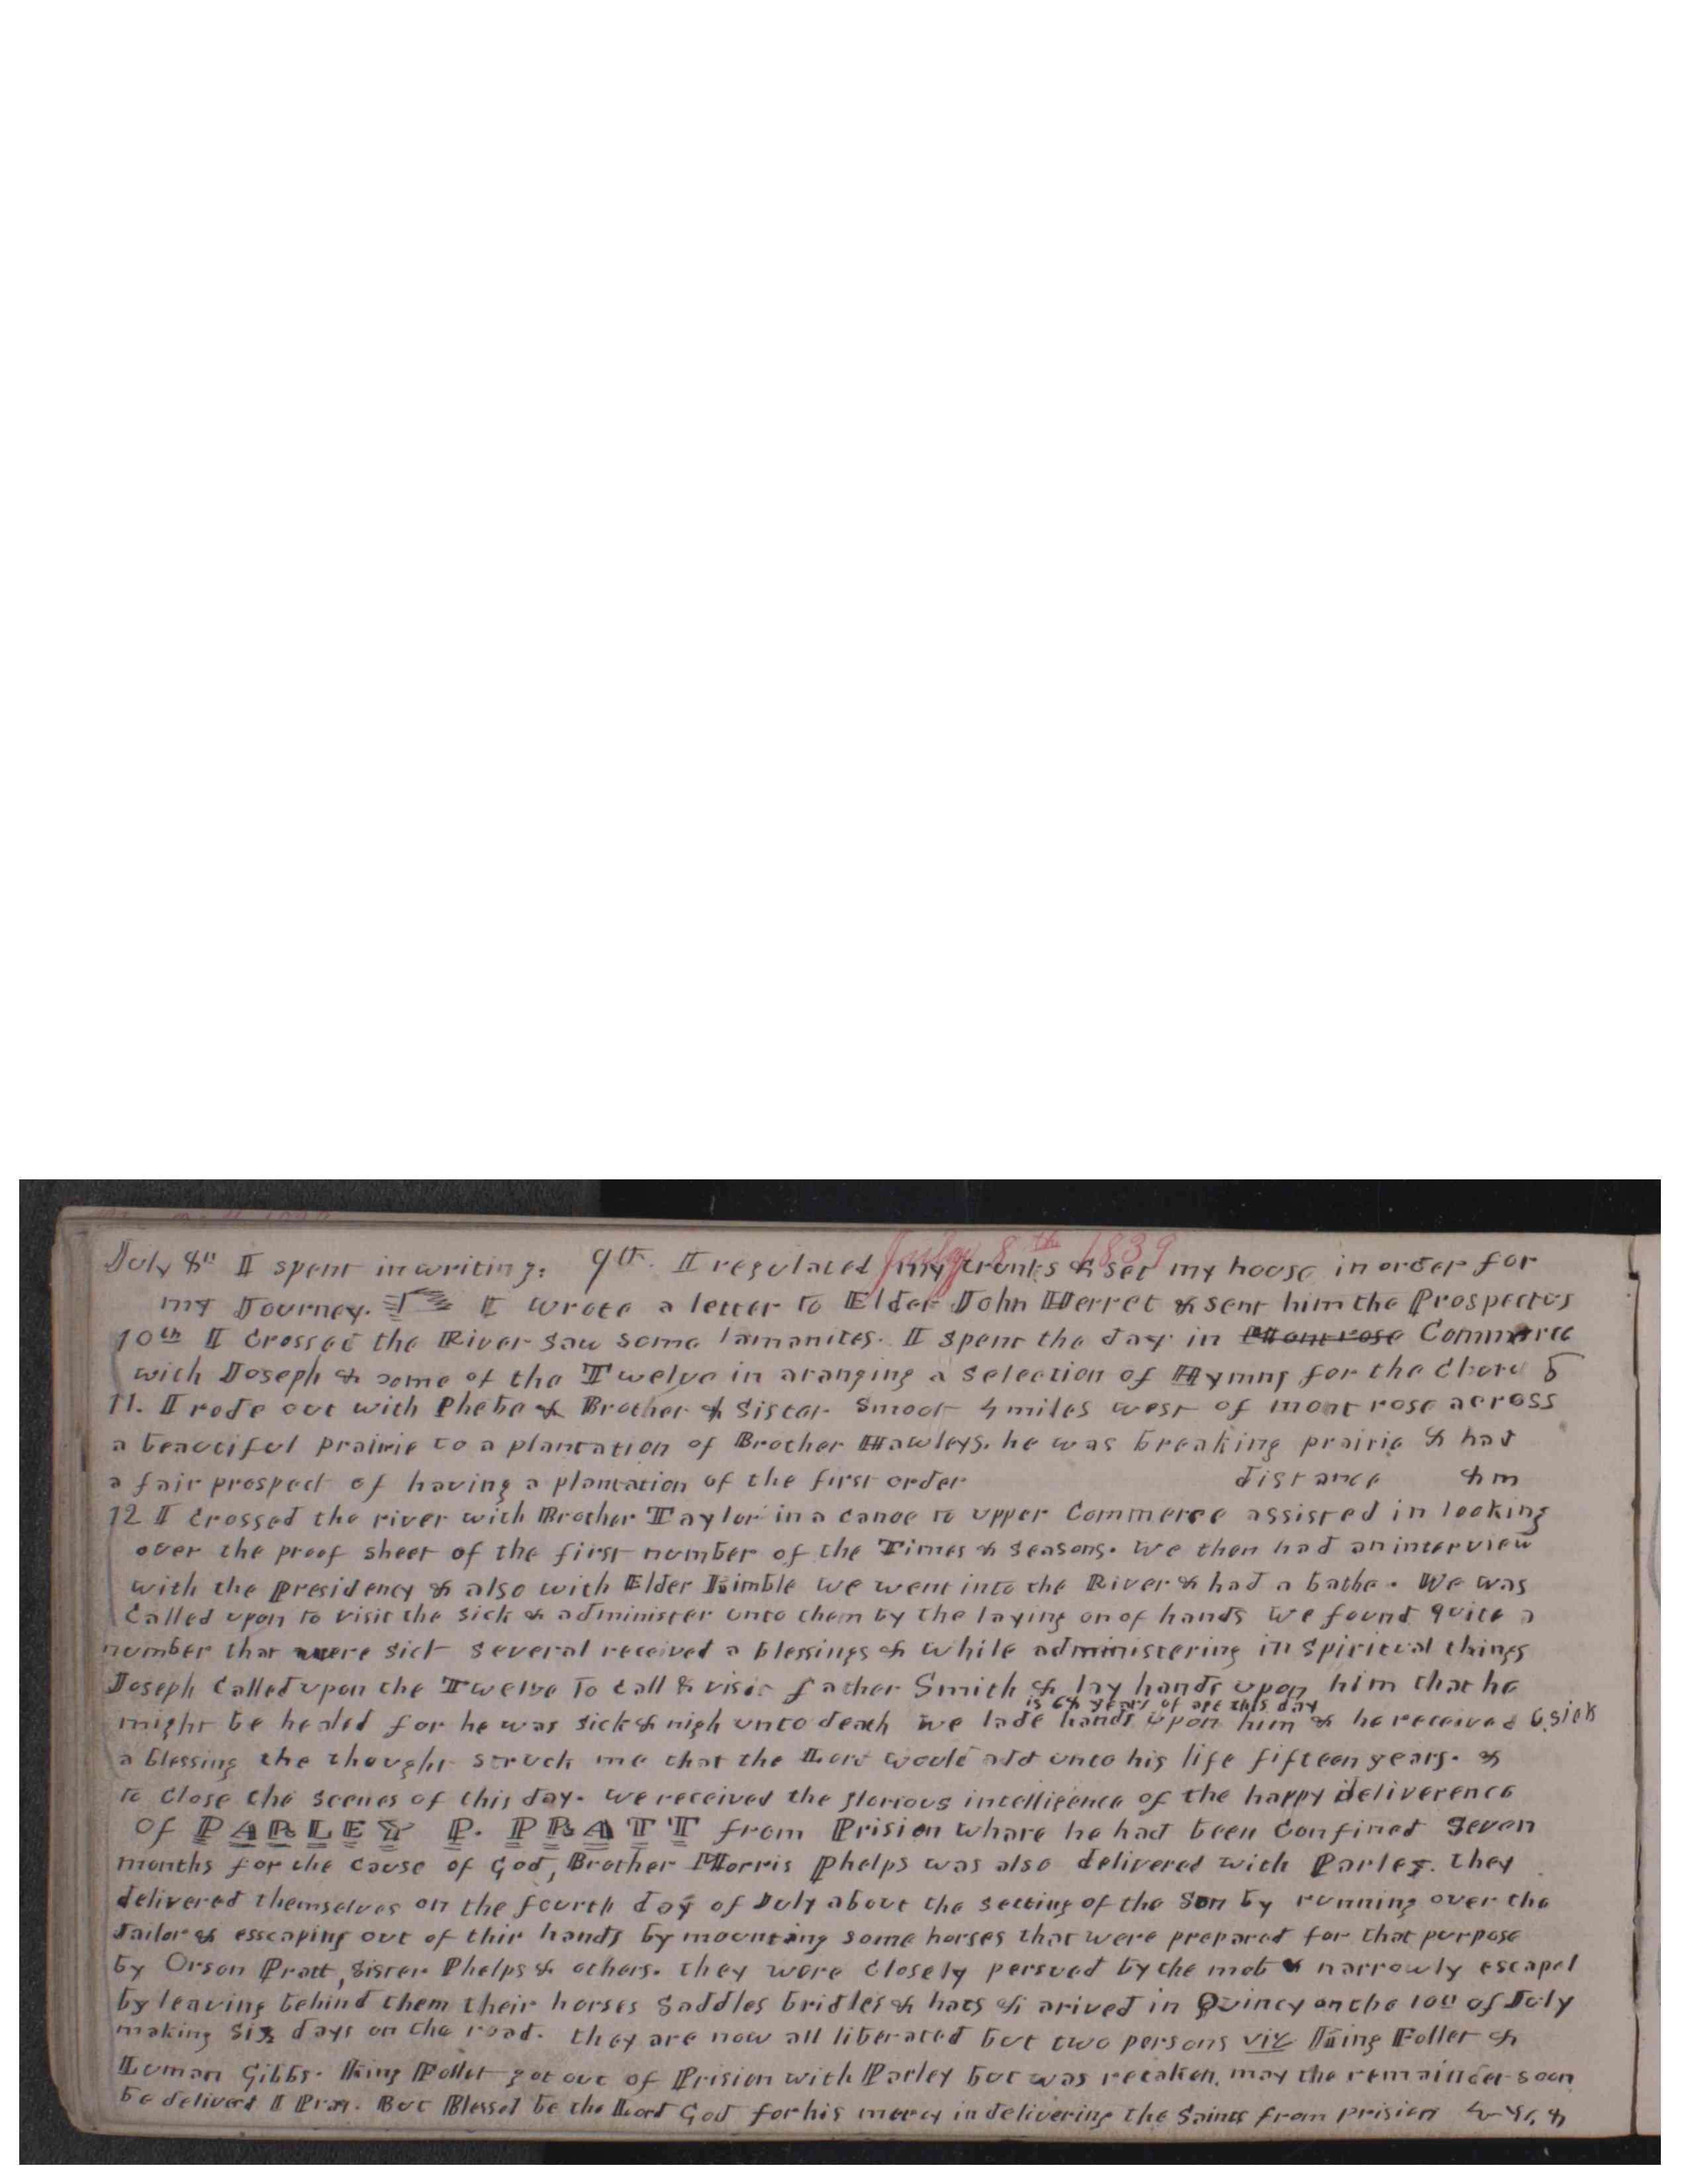 July 8th 1839
July 8th I spent in writing. 9th. I regulated my trunks & set my house in order for
my Journey. I wrote a letter to Elder John Herret & sent him the Prospectus
10th I Crossed the River saw some lamanites. I spent the day in Montrose Commerce
with Joseph & some of the Twelve in aranging a Selection of Hymns for the Church
11. I rode out with Phebe & Brother & Sister Smoot 4 miles west of montrose across
a beautiful prairie to a plantation of Brother Hawleys. he was breaking prairie & had
a fair prospect of having a plantation of the first order distance 4 m
12 I Crossed the river with Brother Taylor in a canoe to upper Commerce assisted in looking
over the proof sheet of the first number of the Times & Seasons. We then had an interview
with the Presidency & also with Elder Kimble we went into the River & had a bathe. We was
Called upon to visit the sick & administer unto them by the laying on of hands we found quite a
number that were sick several received a blessings & while administering in spiritual things
Joseph Called upon the Twelve to call & visit father Smith & lay hands upon him that he
is 68 years of age this day
might be healed for he was sick & nigh unto death we lade hands upon him & he received 6. sick
a blessing the thought struck me that the Lord would add unto his life fifteen years. &
to close the scenes of this day. we received the glorious intelligence of the happy deliverence
of PARLEY P. PRATT from Prision whare he had been Confined Seven
months for the cause of God, Brother Morris Phelps was also delivered with Parley. they
delivered themselves on the fourth day of July about the setting of the Son by running over the
Jailor & esscaping out of thir hands by mounting some horses that were prepared for that purpose
by Orson Pratt, Sister Phelps & others. they were closely persued by the mob & narrowly escaped
by leaving behind them their horses Saddles bridles & hats & arived in Quincy on the 10th of July
making six days on the road. they are now all liberated but two persons viz King Follet &
Luman Gibbs. King Follet got out of Prision with Parley but was retaken. may the remainder soon
be deliverd I Pray. But Blessed be the Lord God for his mercy in delivering the Saints from prision